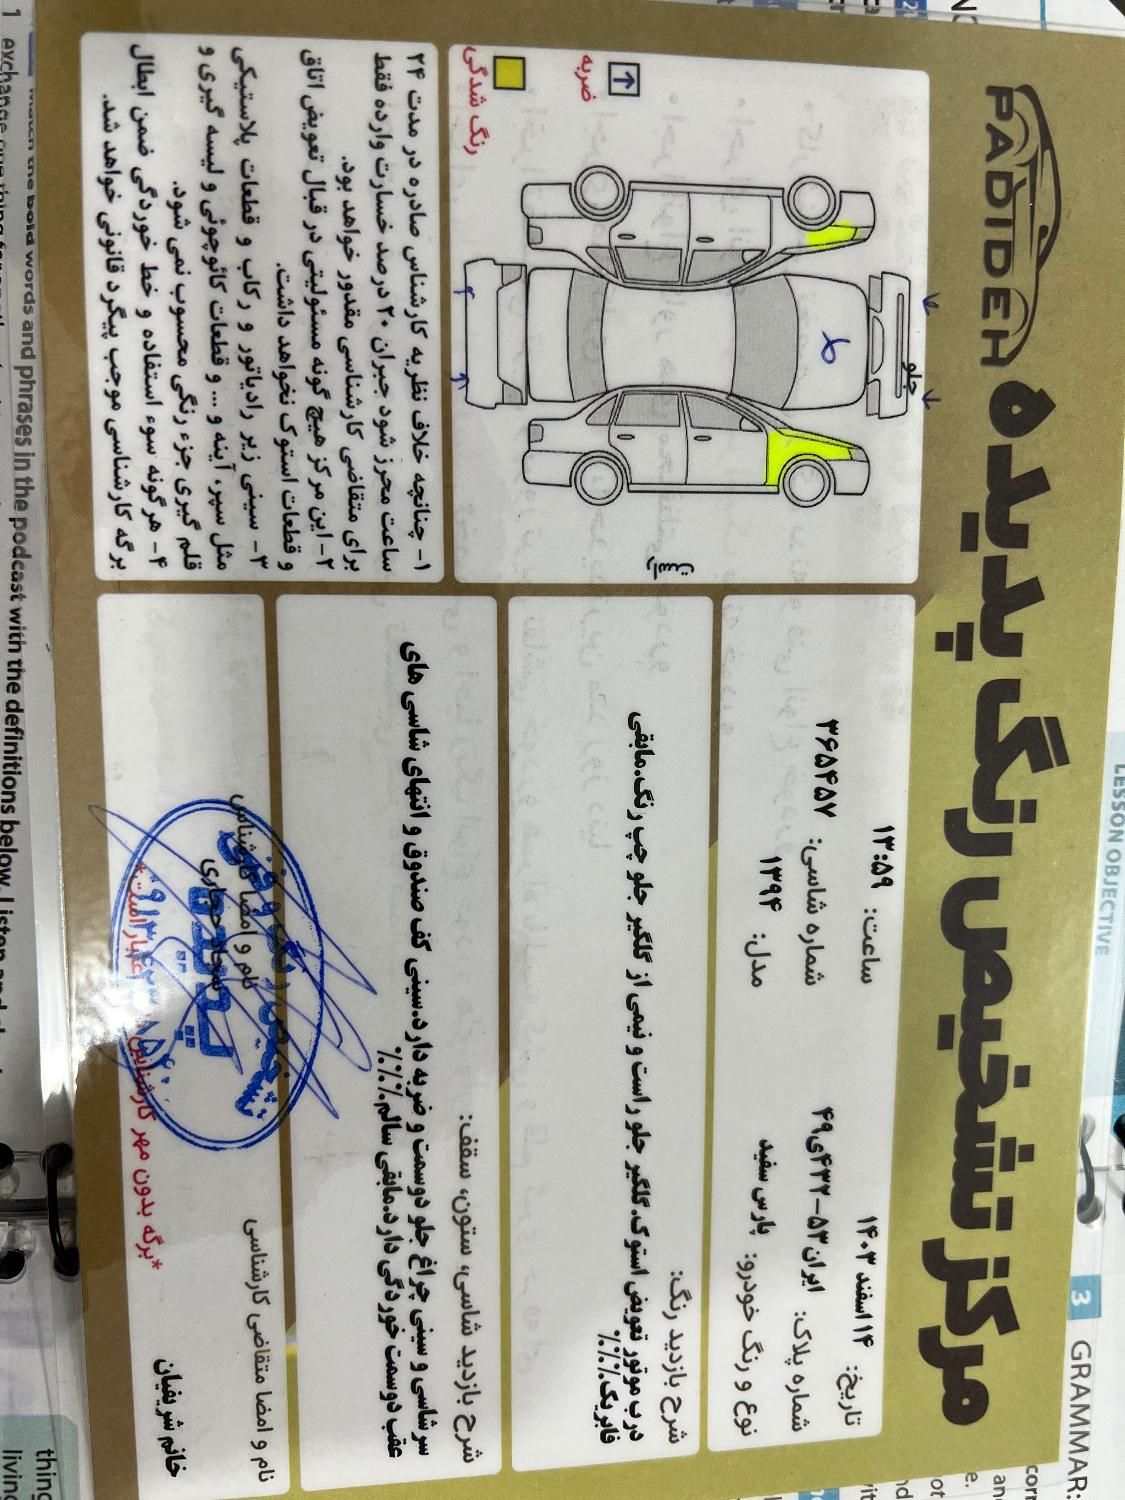 PADIDEH
مرکز تشخیص رنگ پدیده
تاریخ: ۱۴ اسفند ۱۴۰۳
ساعت: ۱۳:۵۹
شماره پلاک: ایران ۵۳-۴۳۲ی۴۹
شماره شاسی: ۳۶۵۴۵۷
نوع و رنگ خودرو: پارس سفید
مدل: ۱۳۹۴
شرح بازدید رنگ:
درب موتور تعویض استوک.گلگیر جلو راست و نیمی از گلگیر جلو چپ رنگ.مابقی
فابریک.%%
شرح بازدید شاسی، ستون، سقف:
سرشاسی و سینی چراغ جلو دوسمت و ضربه دارد.سینی کف صندوق و انتهای شاسی های
عقب دوسمت خوردگی دارد.مابقی سالم.%%
نام و امضا متقاضی کارشناسی
خانم شریفیان
نام و امضا کارشناس
سجاد حجاری
*برگه بدون مهر کارشناس
جلو
ضربه
رنگ شدگی
۱- چنانچه خلاف نظریه کارشناس صادره در مدت ۲۴
ساعت محرز شود جبران ۲۰ درصد خسارت وارده فقط
برای متقاضی کارشناسی مقدور خواهد بود.
۲- این مرکز هیچ گونه مسئولیتی در قبال تعویض اتاق
و قطعات استوک نخواهد داشت.
۳- سینی زیر رادیاتور و رکاب و قطعات پلاستیکی
مثل سپر، آینه و ... و قطعات کائوچوئی و لیسه گیری و
قلم گیری جزء رنگی محسوب نمی شود.
۴- هر گونه سوء استفاده و خط خوردگی ضمن ابطال
برگه کارشناسی موجب پیگرد قانونی خواهد شد.
LESSON OBJECTIVE
3 GRAMMAR:
words and phrases in the podcast with the definitions below. Listen and